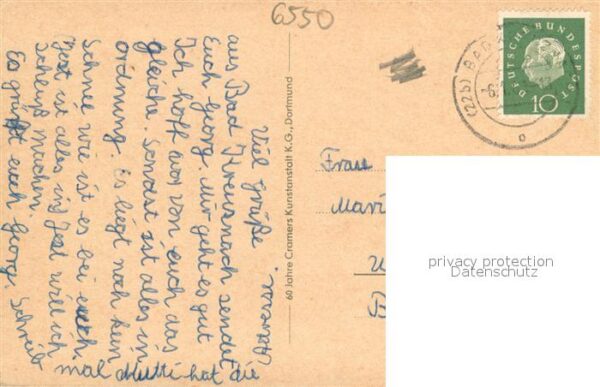 6550
Viel Grüße
aus Bad Kreuznach sendet
Euch Georg. Mir geht es gut
Ich hoff avor von euch das
gleiche. Sonst ist alles in
ordnung. Es liegt noch kein
Schnee wie ist es bei euch.
Jezt will ich
Schluß machen.
Es grüßt euch Georg. Schreib
mal Mutti hat die
60 Jahre Cramers Kunstanstalt K.G., Dortmund
(22b) BAD
DEUTSCHE BUNDESPOST
10
Frau
privacy protection
Datenschutz